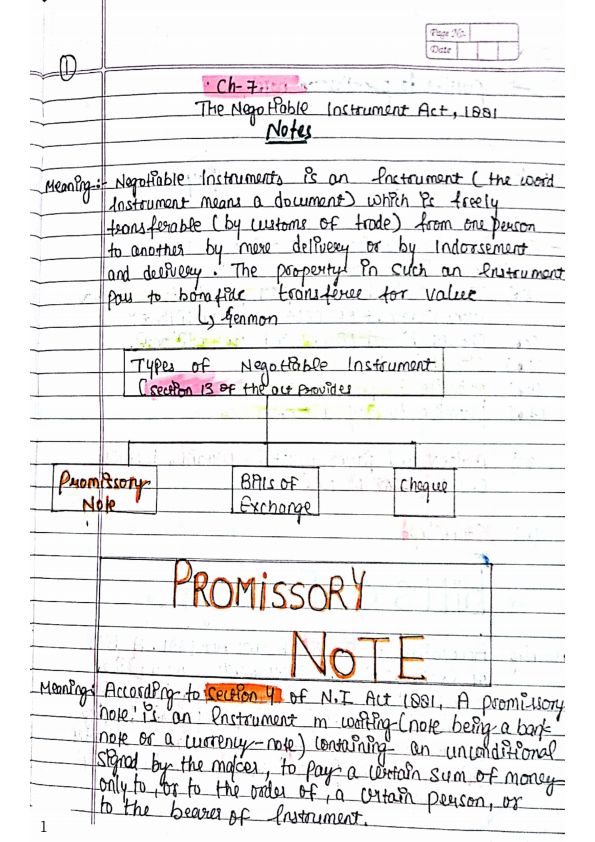 Page No.
Date
1
Ch-7
The Negotiable Instrument Act, 1881
Notes
Meaning:- Negotiable Instruments is an Instrument (the word
Instrument means a document) which is freely
transferable (by customs of trade) from one person
to another by mere delivery or by Indorsement
and delivery. The property in such an Instrument
pass to bonafide transferee for value
↳ Genmon
Types of Negotiable Instrument
(section 13 of the act provides
Promissory
Note
Bills of
Exchange
Cheque
PROMISSORY
NOTE
Meaning: According to section 4 of N.I Act 1881, A promissory
note 'is an Instrument in writing (note being a bank
note or a currency-note) containing an unconditional
signed by the maker, to pay a certain sum of money
only to, or to the order of, a certain person, or
to the bearer of Instrument.
1